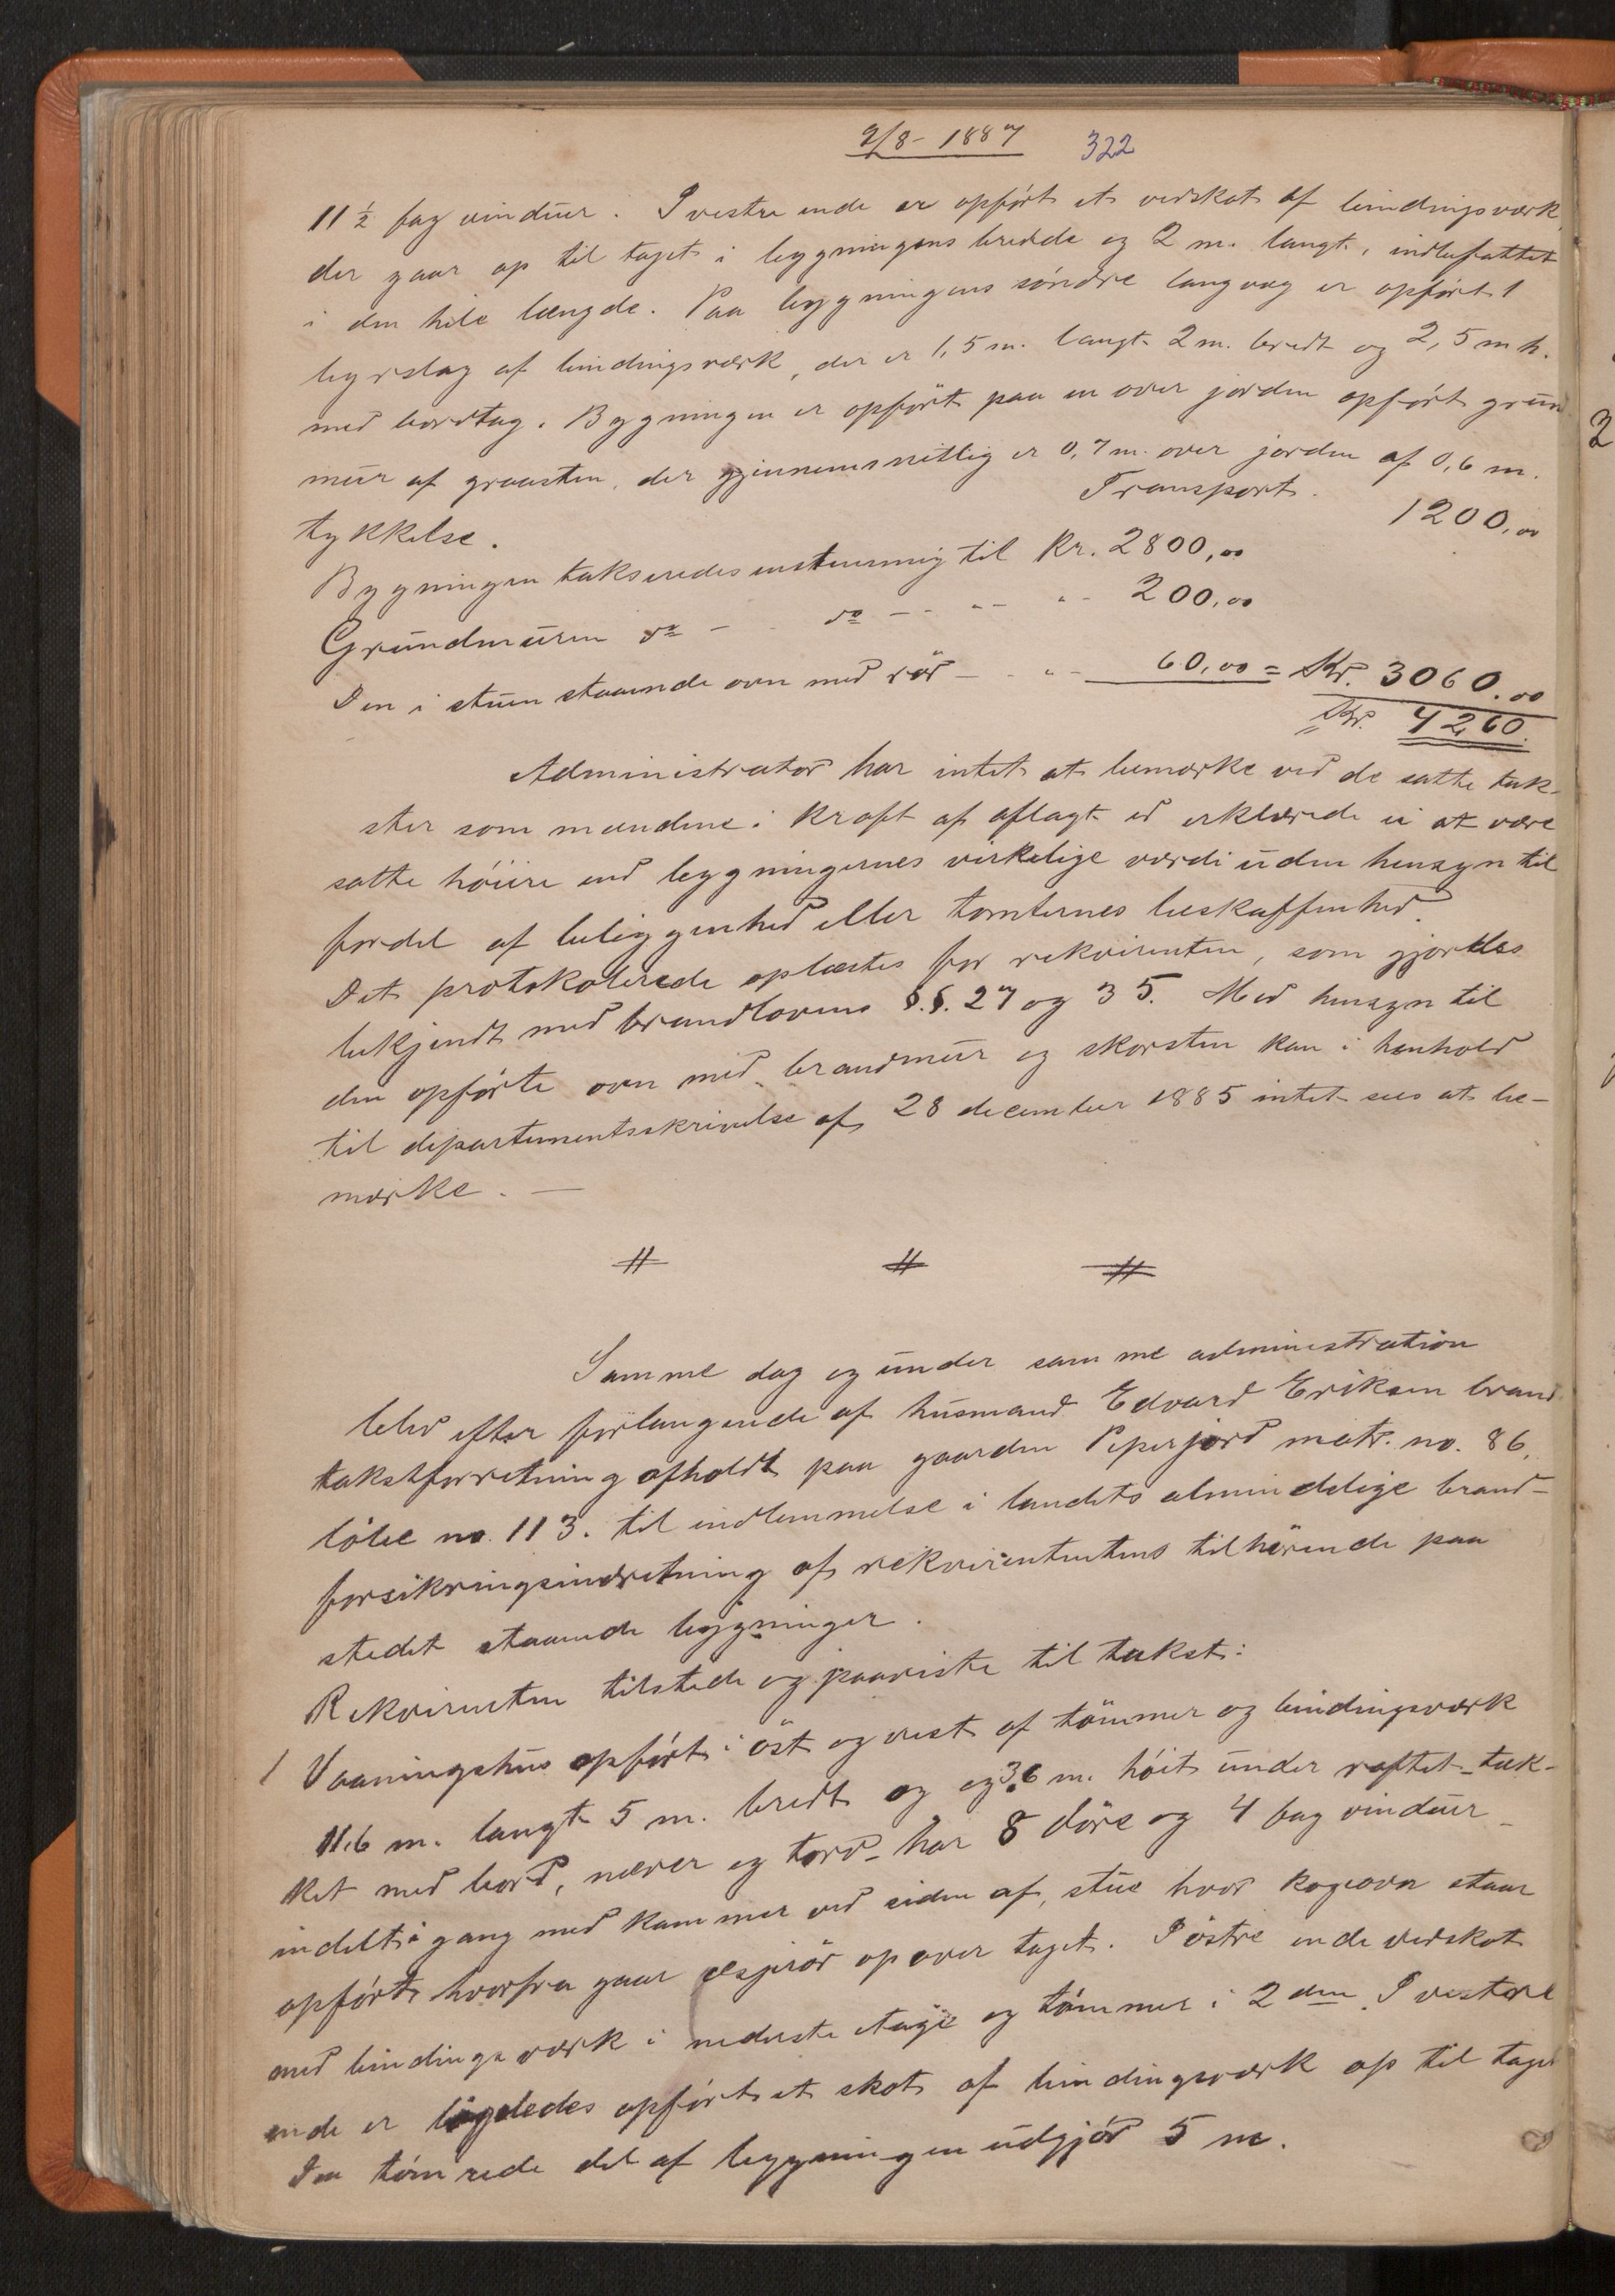 9/8 - 1887 322
11 ½ fag vinduer. I vestre ende er opført et vedskot af bindingsværk,
der gaar op til taget i bygningens bredde og 2 m. langt, indbefattet
i den hele længde. Paa bygningens søndre langvæg er opført 1
byrslag af bindingsværk, der er 1,5 m. langt 2 m. bredt og 2,5 m h.
med bordtag. Bygningen er opført paa en over jorden opført grun
mur af graasten, der gjennemsnitlig er 0,7 m. over jorden af 0,6 m.
tykkelse. Transport. 1200,00
Bygningen takseredes enstemmig til Kr. 2800,00
Grundmuren do - do - - " - 200,00
Den i stuen staaende ovn med rør - " - 60,00 = Kr. 3060.00
Kr. 4260.
Administrator har intet at bemærke ved de satte tak-
ster som mændene i kraft af aflagt ed erklærede ei at være
satte høiere end bygningernes virkelige værdi uden hensyn til
fordel af beliggenhed eller tomternes beskaffenhed.
Det protokolerede oplæstes for rekvirenten, som gjordes
bekjendt med brandlovens §.§. 27 og 35. Med hensyn til
den opførte ovn med brandmur og skorsten kan i henhold
til departementsskrivelse af 28 december 1885 intet sees at be-
mærke. -
# # #
Samme dag og under samme administration
blev efter forlangende af husmand Edvard Eriksen brand
takstforretning afholdt paa gaarden Peperjord matr. no. 86,
løbe no. 113. til indlemmelse i landets almindelige brand-
forsikringsindretning af rekvirententens tilhørende paa
stedet staaende bygninger.
Rekvirenten tilstede og paaviste til takst:
1 Vaaningshus opført i øst og vest af tømmer og bindingsværk
11,6 m. langt 5 m. bredt og og 3,6 m. høit under raftet - tæk-
ket med bord, næver og torv - har 8 døre og 4 fag vinduer -
indelt i gang med kammer ved siden af, stue hvor kogeovn staar
opført hvorfra gaar esjerør op over taget. I østre ende vedskot
med bindingsværk i nederste etage og tømmer i 2den. I vestre
ende er ligeledes opført et skot af bindingsværk op til taget
Den tømrede del af bygningen udgjør 5 m.